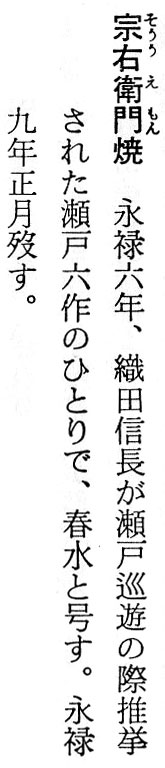 宗右衛門焼　永禄六年、織田信長が瀬戸巡遊の際推挙
された瀬戸六作のひとりで、春水と号す。永禄
九年正月歿す。
そううえもん